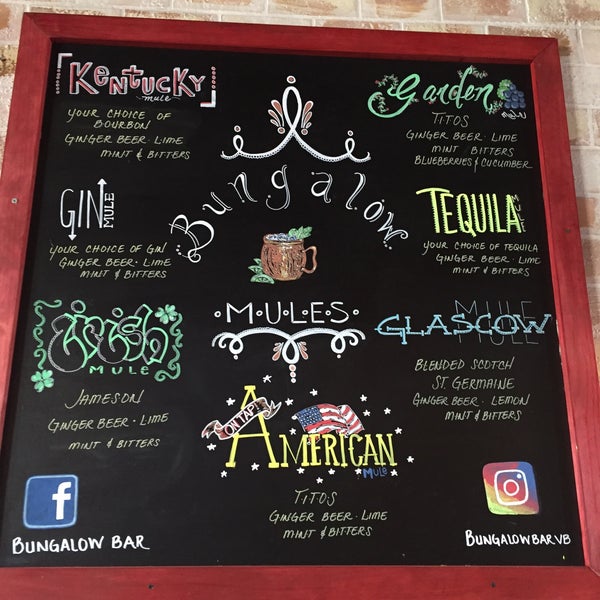 KENTUCKY
mule
YOUR CHOICE OF
BOURBON
GINGER BEER · LIME
MINT & BITTERS
Garden
TITOS
GINGER BEER · LIME
MINT & BITTERS
BLUEBERRIES & CUCUMBER
Bungalow
MULES
GIN
MULE
YOUR CHOICE OF GIN
GINGER BEER · LIME
MINT & BITTERS
TEQUILA
YOUR CHOICE OF TEQUILA
GINGER BEER · LIME
MINT & BITTERS
irish
MULE
JAMESON
GINGER BEER · LIME
MINT & BITTERS
MULE
GLASCOW
MULE
BLENDED SCOTCH
ST. GERMAINE
GINGER BEER · LEMON
MINT & BITTERS
ON TAP!
AMERICAN
MULE
TITOS
GINGER BEER · LIME
MINT & BITTERS
f
BUNGALOW BAR
BUNGALOWBARVB